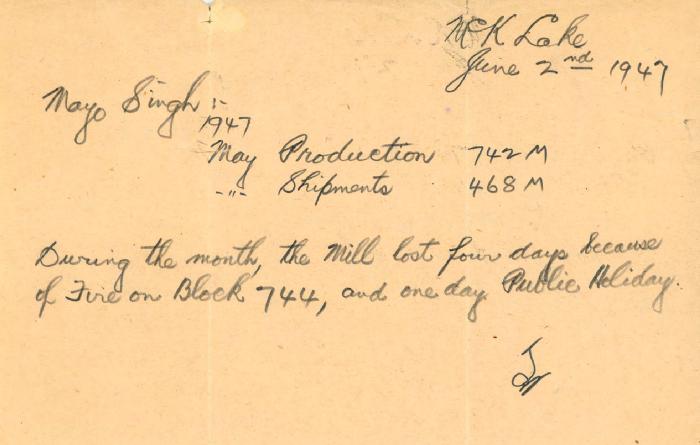 McK Lake
June 2nd 1947
Mayo Singh :-
1947
May Production 742 M
-"- Shipments 468 M
During the month, the Mill lost four days because
of Fire on Block 744, and one day Public Holiday.